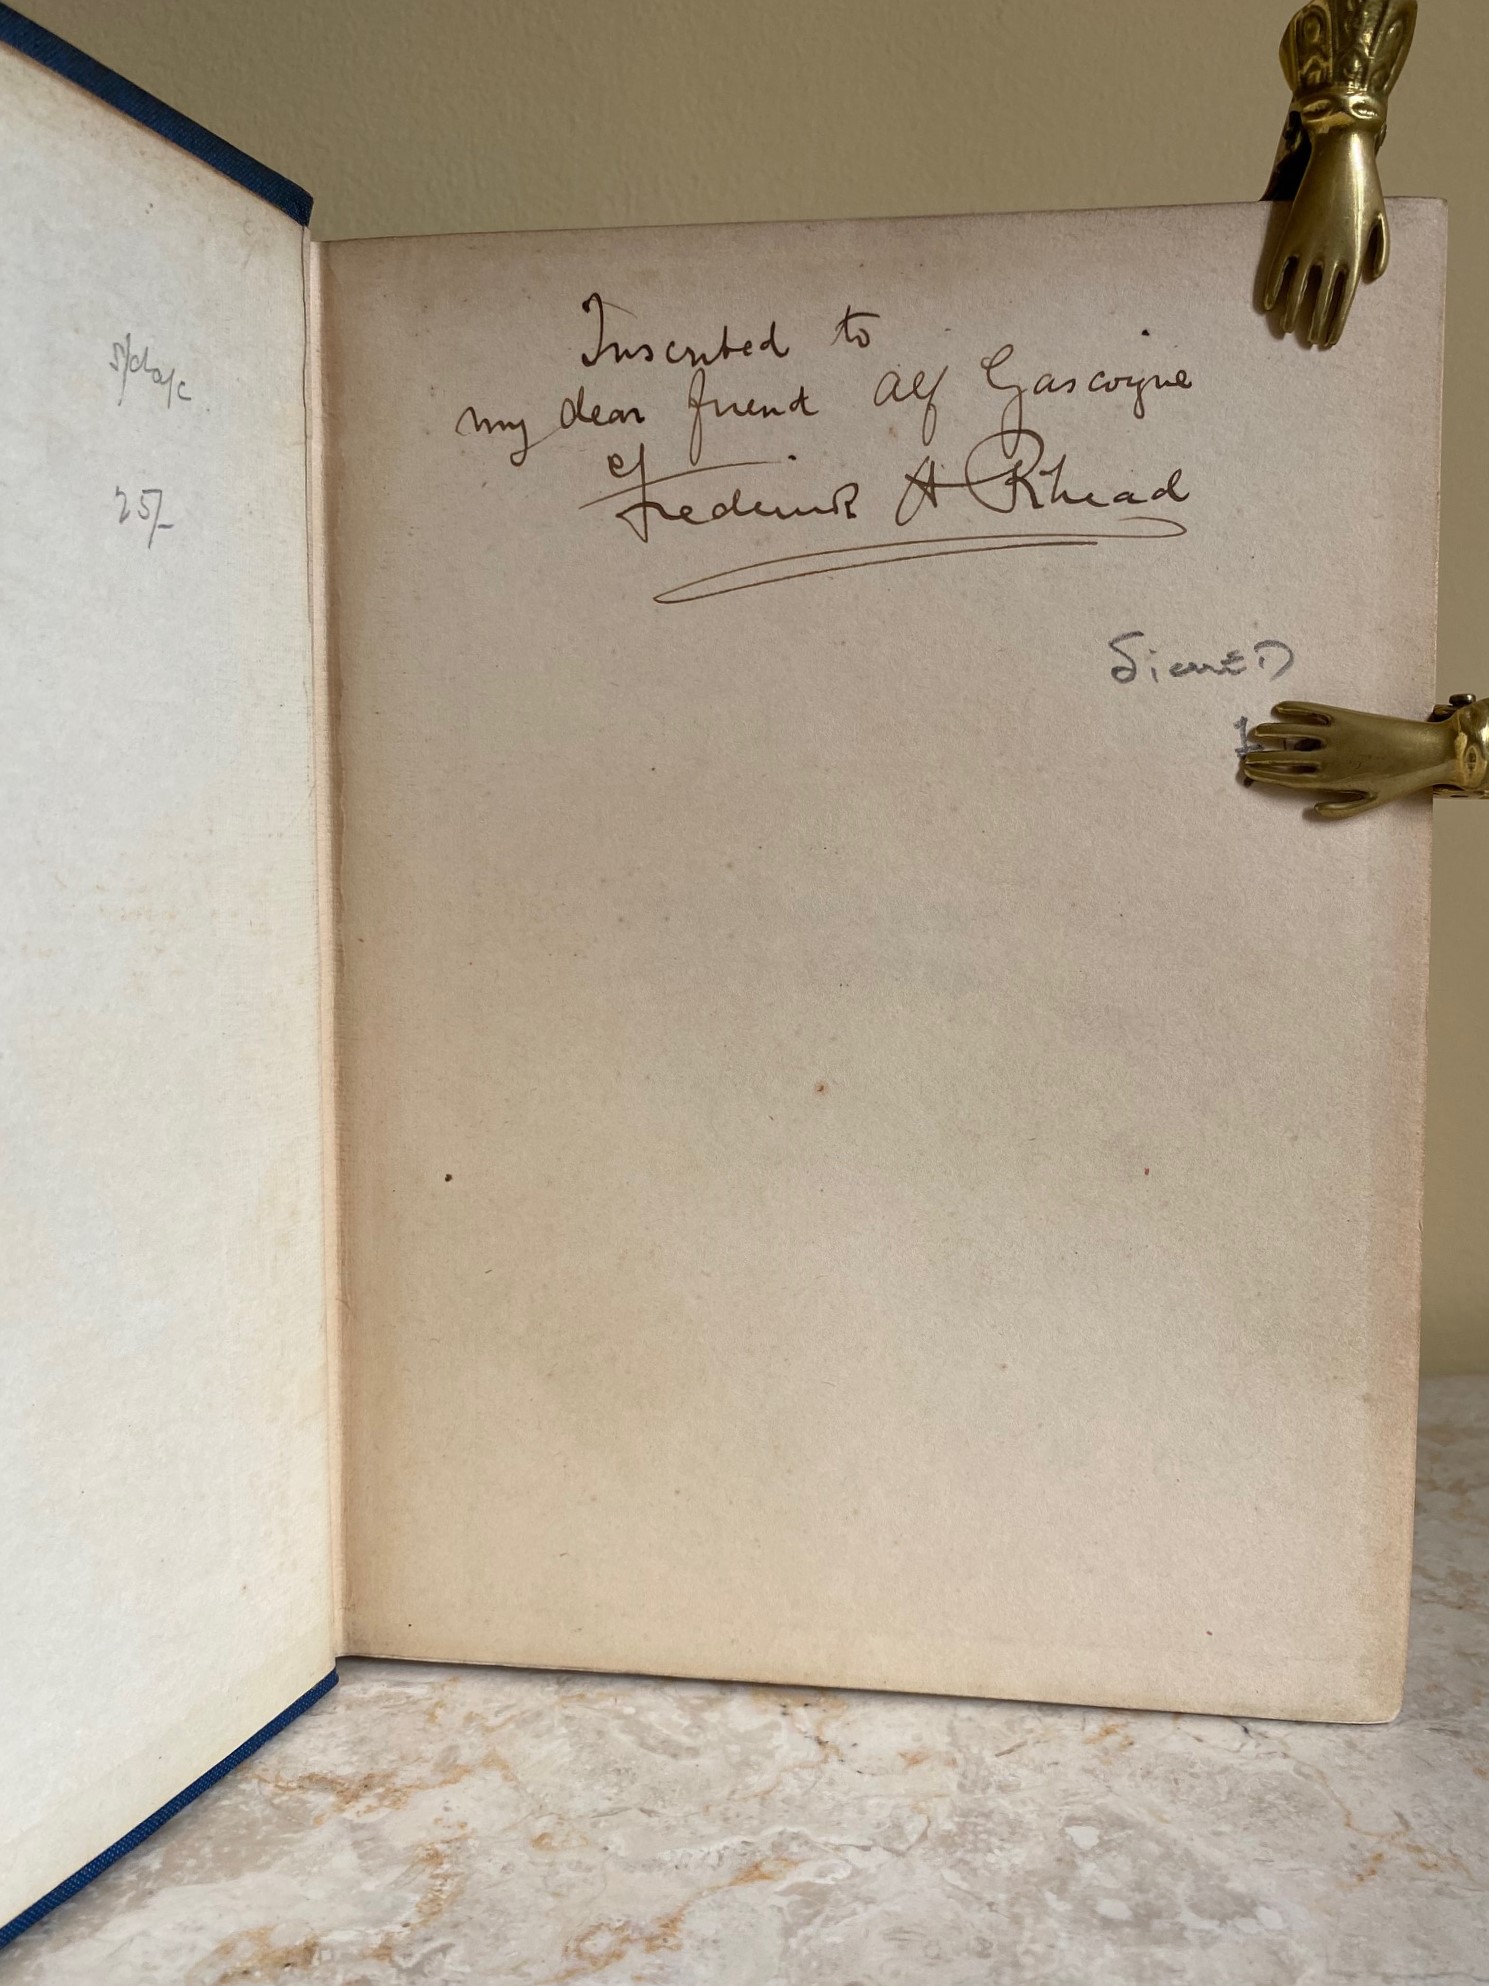 25/-
Inscribed to
my dear friend Alf Gascoigne
Frederick A Rhead
SignED